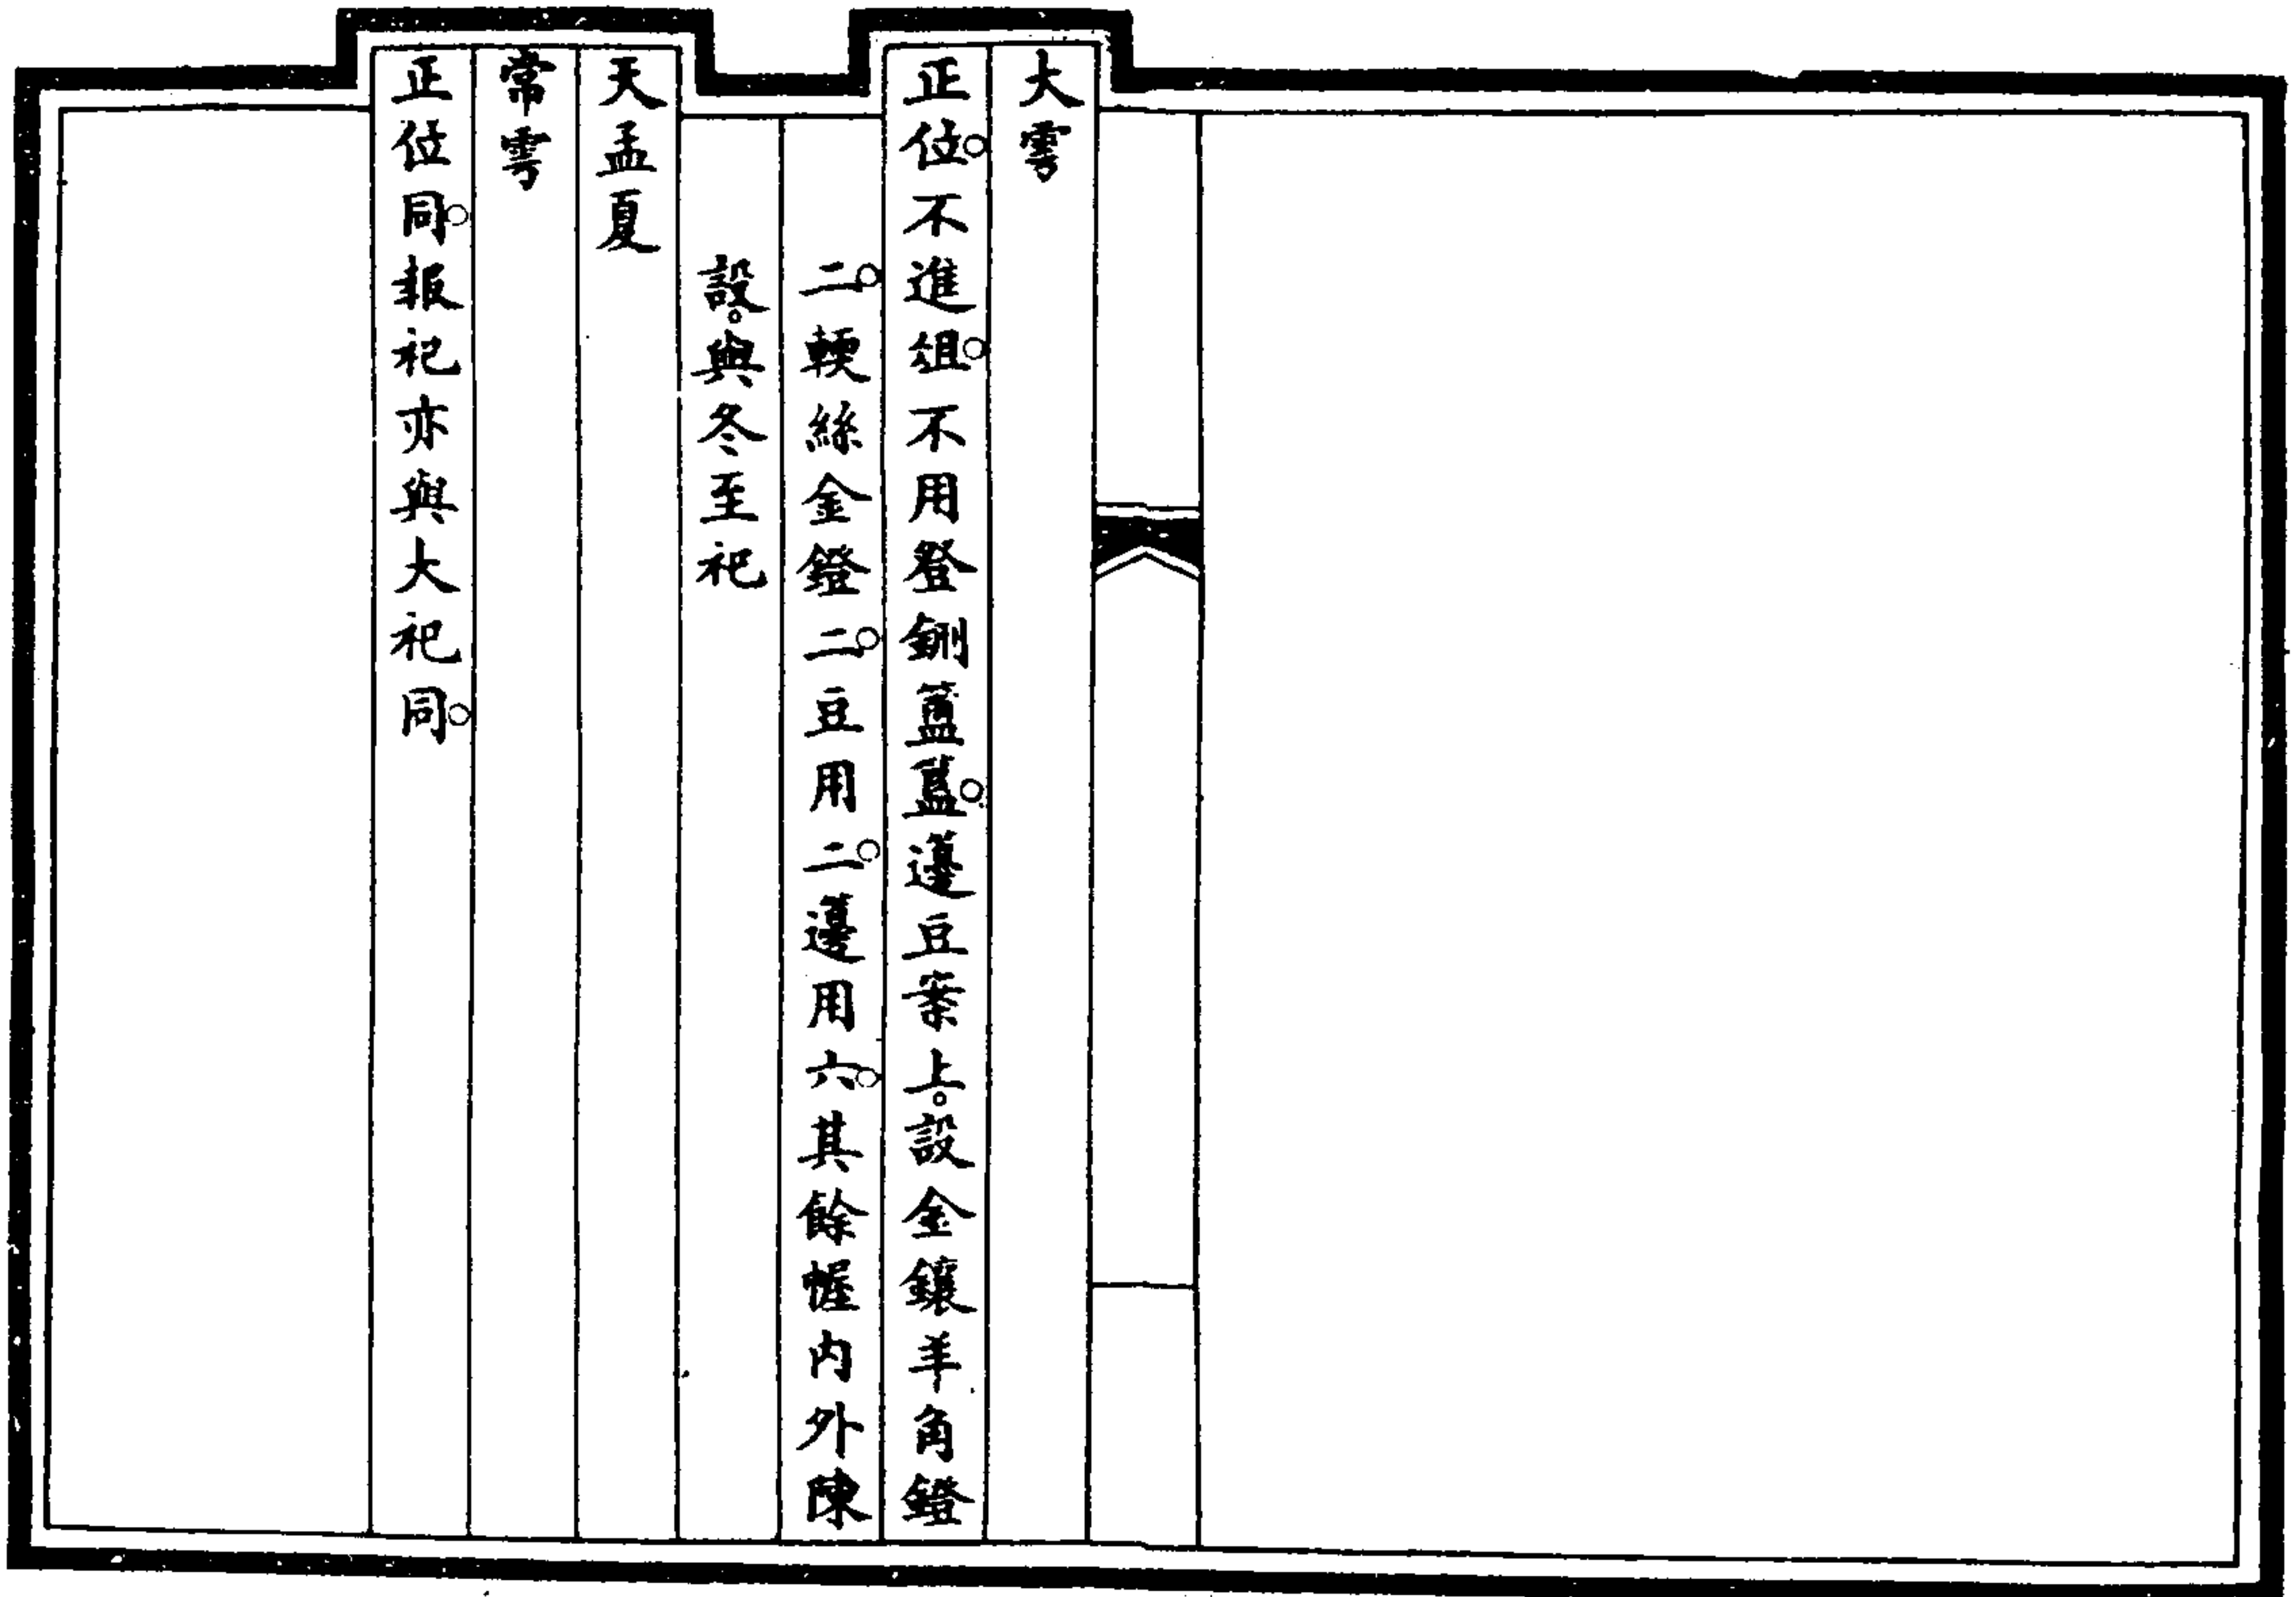 大雩
正位。不進俎。不用登鉶簠簋。籩豆案上。設金鑲羊角鐙
二。輭絲金鐙二。豆用二。籩用六。其餘幄內外陳
設。與冬至祀
天孟夏
常雩
正位同。報祀亦與大祀同。